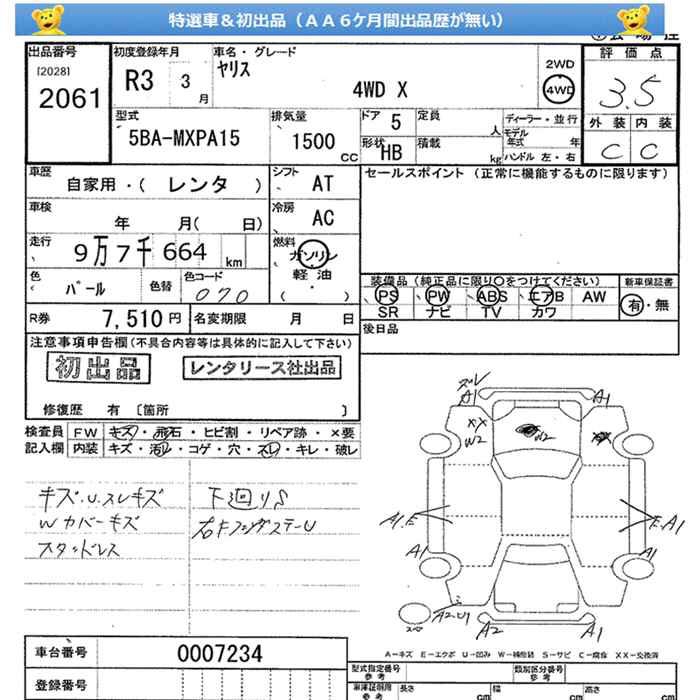 特選車＆初出品（ＡＡ６ケ月間出品歴が無い）
出品番号
[2028]
2061
初度登録年月
R3 3 月
車名・グレード
ヤリス
4WD X
2WD
4WD
評価点
3.5
外装 内装
C C
型式
5BA-MXPA15
排気量
1500 cc
ドア 5
形状 HB
定員 人
積載 kg
ディーラー・並行
モデル年式 年
ハンドル 左・右
車歴
自家用・( レンタ )
シフト
AT
車検
年 月( 日)
冷房
AC
走行
9万7千664 km
燃料
ガソリン
軽油
( )
色
パール
色替
色コード
070
セールスポイント（正常に機能するものに限ります）
装備品（純正品に限り○をつけてください）
PS PW ABS エアB AW
SR ナビ TV カワ
新車保証書
有・無
R券 7,510円
名変期限 月 日
後日品
注意事項申告欄(不具合内容等は具体的に記入して下さい)
初出品 レンタリース社出品
修復歴 有 [箇所 ]
検査員記入欄
FW キズ・飛石・ヒビ割・リペア跡・×要
内装 キズ・汚れ・コゲ・穴・スレ・キレ・破レ
キズ.U.スレキズ
Wカバーキズ
スタッドレス
下廻りS
右Fフェンダステー U
ズレ
A1
A1
XX
W2
W2
A1.E
E.A1
A1
A1
A2-U1
A2
A1
A=キズ E=エクボ U=凹み W=補修跡 S=サビ C=腐食 XX=交換済
車台番号 0007234
登録番号
型式指定番号
参考
類別区分番号
参考
車庫証明用
参考
長さ cm
幅 cm
高さ cm